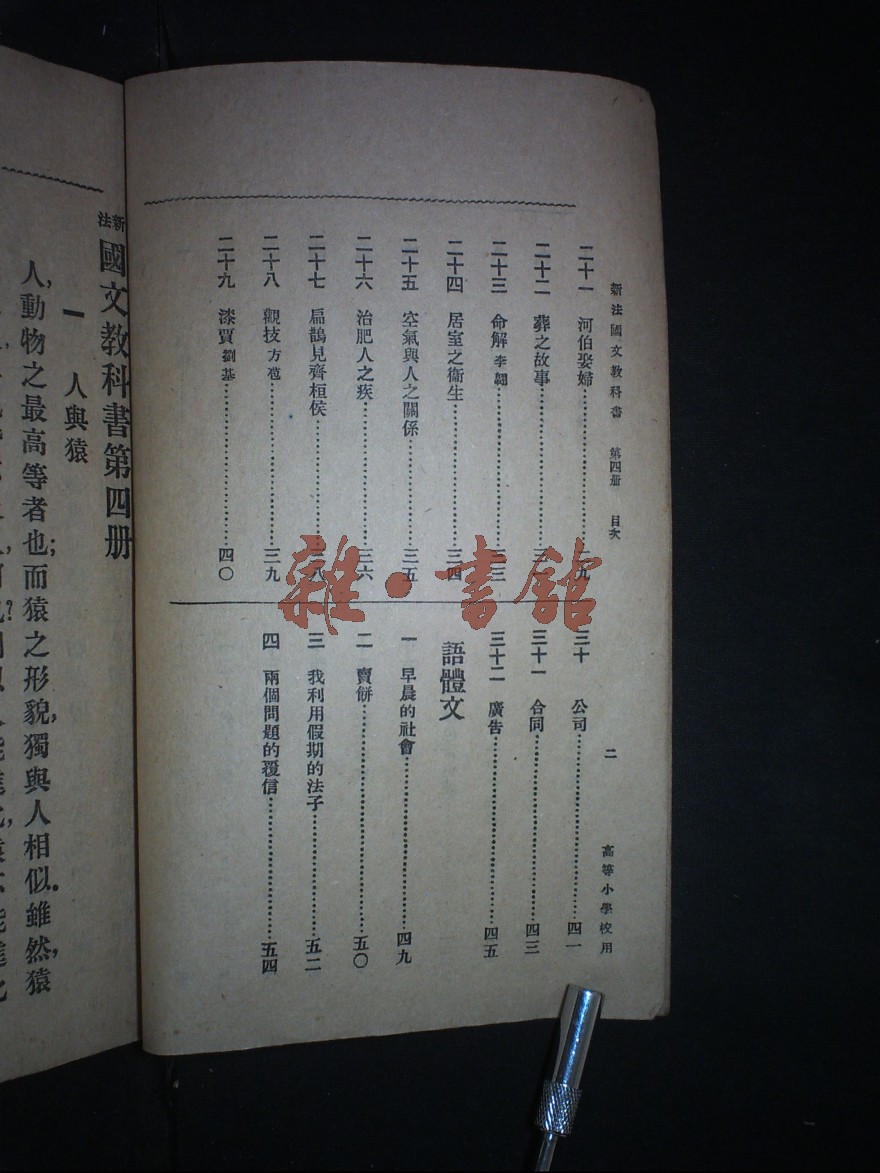 新法國文教科書 第四册 目次 二 高等小學校用
二十一 河伯娶婦
二十二 葬之故事
二十三 命解 李翺
二十四 居室之衞生 三四
二十五 空氣與人之關係 三五
二十六 治肥人之疾 三六
二十七 扁鵲見齊桓侯 三八
二十八 觀技 方苞 三九
二十九 漆賈 劉基 四〇
三十 公司 四一
三十一 合同 四三
三十二 廣告 四五
語體文
一 早晨的社會 四九
二 賣餅 五〇
三 我利用假期的法子 五二
四 兩個問題的覆信 五四
雜·書館
新法國文教科書第四册
一 人與猿
人,動物之最高等者也;而猿之形貌,獨與人相似。雖然,猿